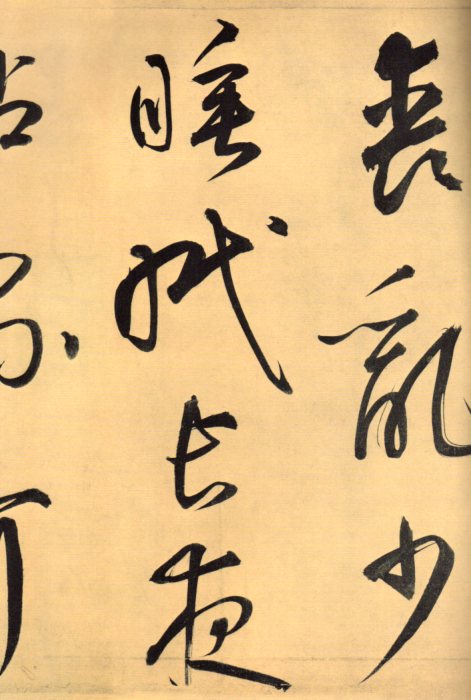 喪亂少
睡眠長夜